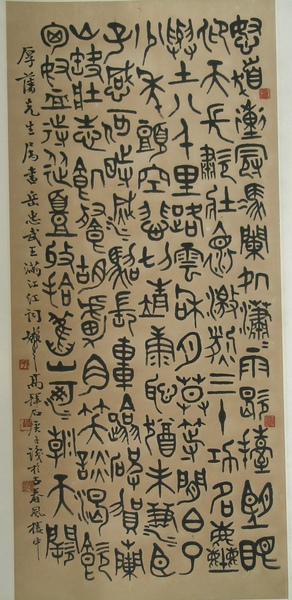 怒髮衝冠馮闌処瀟瀟雨歇擡望眼
仰天長嘯壯懷激烈三十功名塵
與土八千里路雲和月莫等閒白了
少年頭空悲切靖康恥猶未雪臣
子恨何時滅駕長車踏破賀蘭
山缺壯志飢餐胡虜肉笑談渴飲
匈奴血待從頭收拾舊山河朝天闕
厚蕃先生屬書岳忠武王滿江紅詞 春風樓中